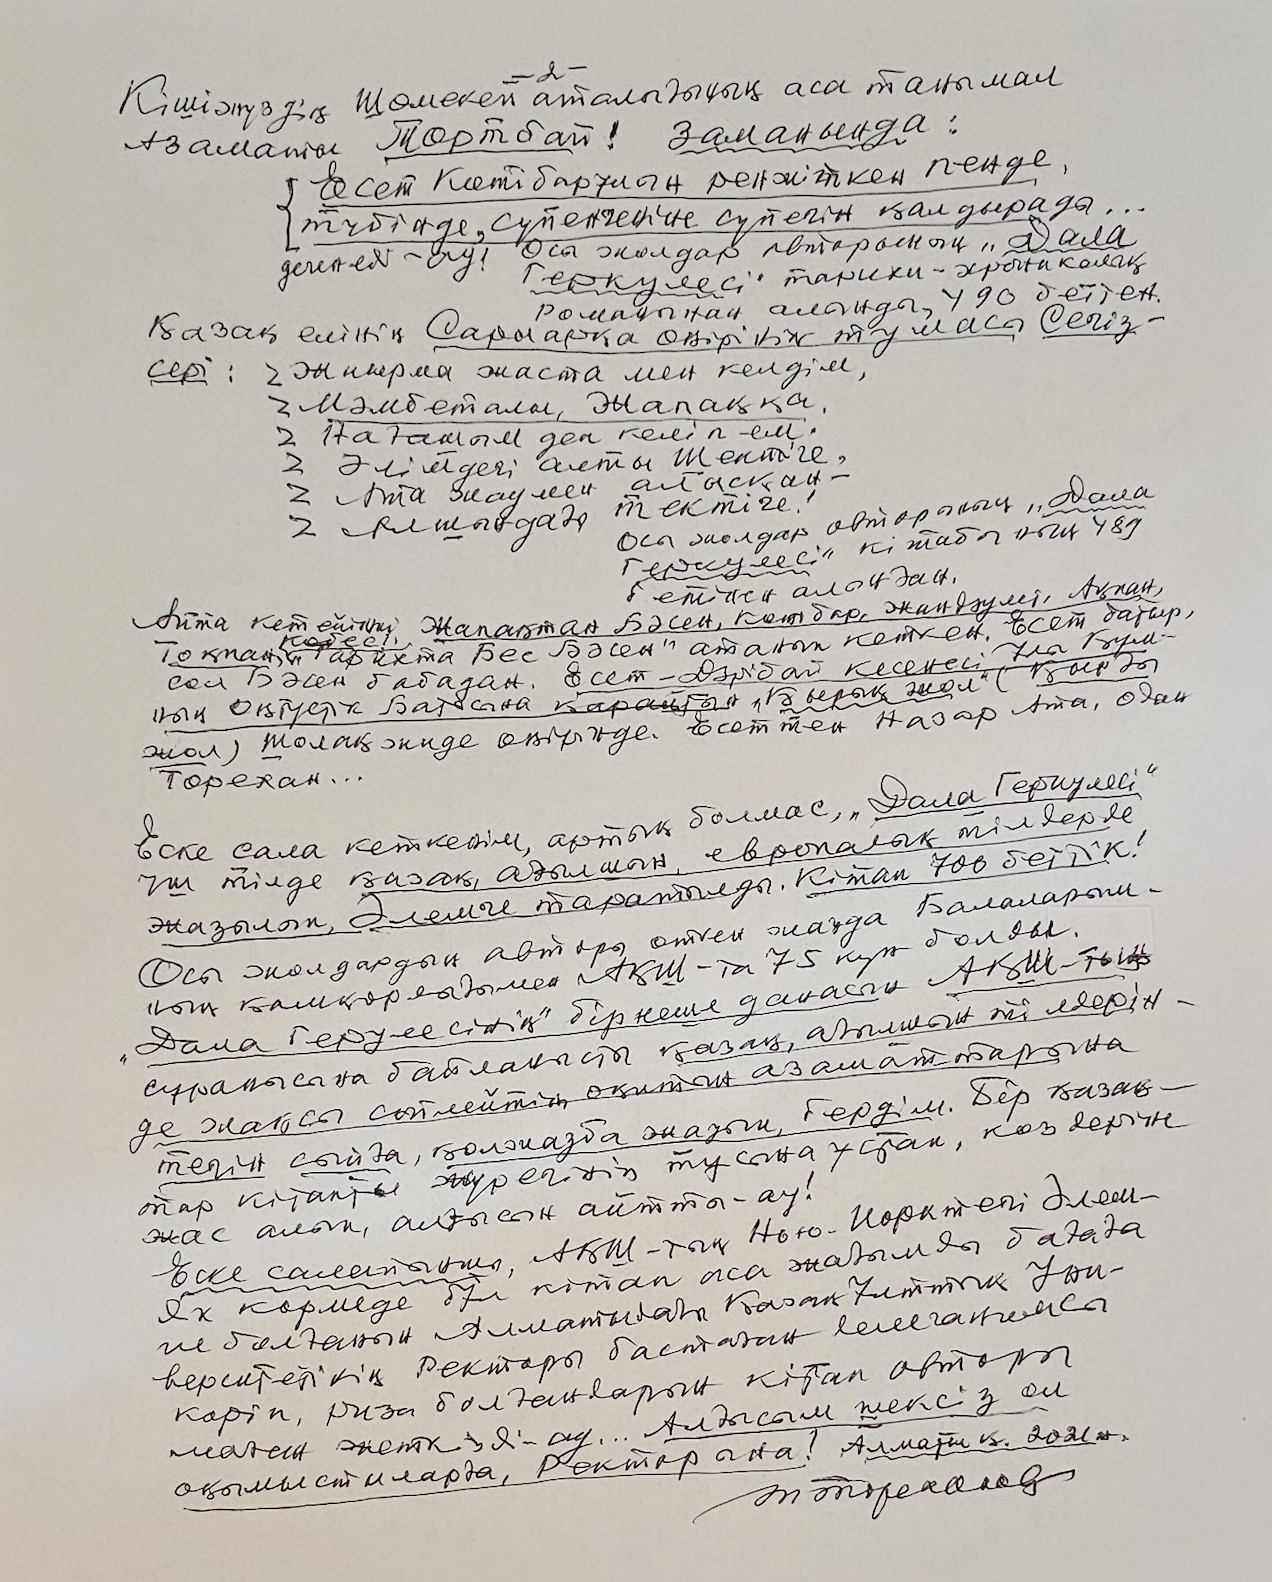 -2-
Кішіжүздің Шөмекей аталығының аса танымал
Азаматы Төртбай! Заманында:
Есет Көтібарұлын ренжіткен пенде,
түбінде, сүленшеніне сүлегін қалдырады...
дегенеді-ау! Осы жолдар авторының „Дала
Геркулесі" тарихи-хроникалық
романынан алынды, 490 беттен.
Қазақ елінің Сарыарқа өңірінің тумасы Сегіз-
сері: Жиырма жаста мен келдім,
Мәмбеталы, Жапаққа,
Нағашым деп келіп ем.
Әлімдегі алты Шектіге,
Ата жаумен алысқан-
Алшындағы тектіге!
Осы жолдар авторының „Дала
Геркулесі" кітабының 489
бетінен алынған.
Айта кетейінші, Жапақтан Бәсен, Көтібар, Жандәулі, Ақпан,
көбесі,
Тоқпан „Тарихта Бес Бәсен" атанып кеткен. Есет батыр,
сол Бәсен бабадан. Есет-Дәрібай кесенесі Ұлы Құм-
ның Оңтүстік Батысына қарайтын „Қырық жол" (Қырғы
жол) Шолақжиде өңірінде. Есеттен Назар Ата, одан
Төрехан...
Еске сала кеткенім, артық болмас, „Дала Геркулесі"
үш тілде қазақ, ағылшын, европалық тілдерде
жазылып, Әлемге таратылды. Кітап 700 беттік!
Осы жолдардың авторы өткен жазда Балаларым-
ның қамқорлығымен АҚШ-та 75 күн болды.
„Дала Герулесінің" бірнеше данасын АҚШ-тың
сұранысына байланысты қазақ, ағылшын тілдерін-
де жақсы сөйлейтін, оқитын азаматтарына
тегін сыйға, қолжазба жазып, бердім. Бір қазақ-
тар кітапты жүрегінің тұсына ұстап, көздеріне
жас алып, алғысын айтты-ау!
Еске салатыным, АҚШ-тың Нью-Йорктегі Әлем-
дік көрмеде бұл кітап аса жағымды бағаға
ие болғанын Алматыдағы Қазақ Ұлттық Уни-
верситетінің Ректоры бастаған делегациясы
көріп, риза болғандарын кітап авторы
маған жеткізді-ау... Алғысым шексіз ол
оқымыстыларға, Ректорына! Алматы қ. 2021ж.
Төреханов